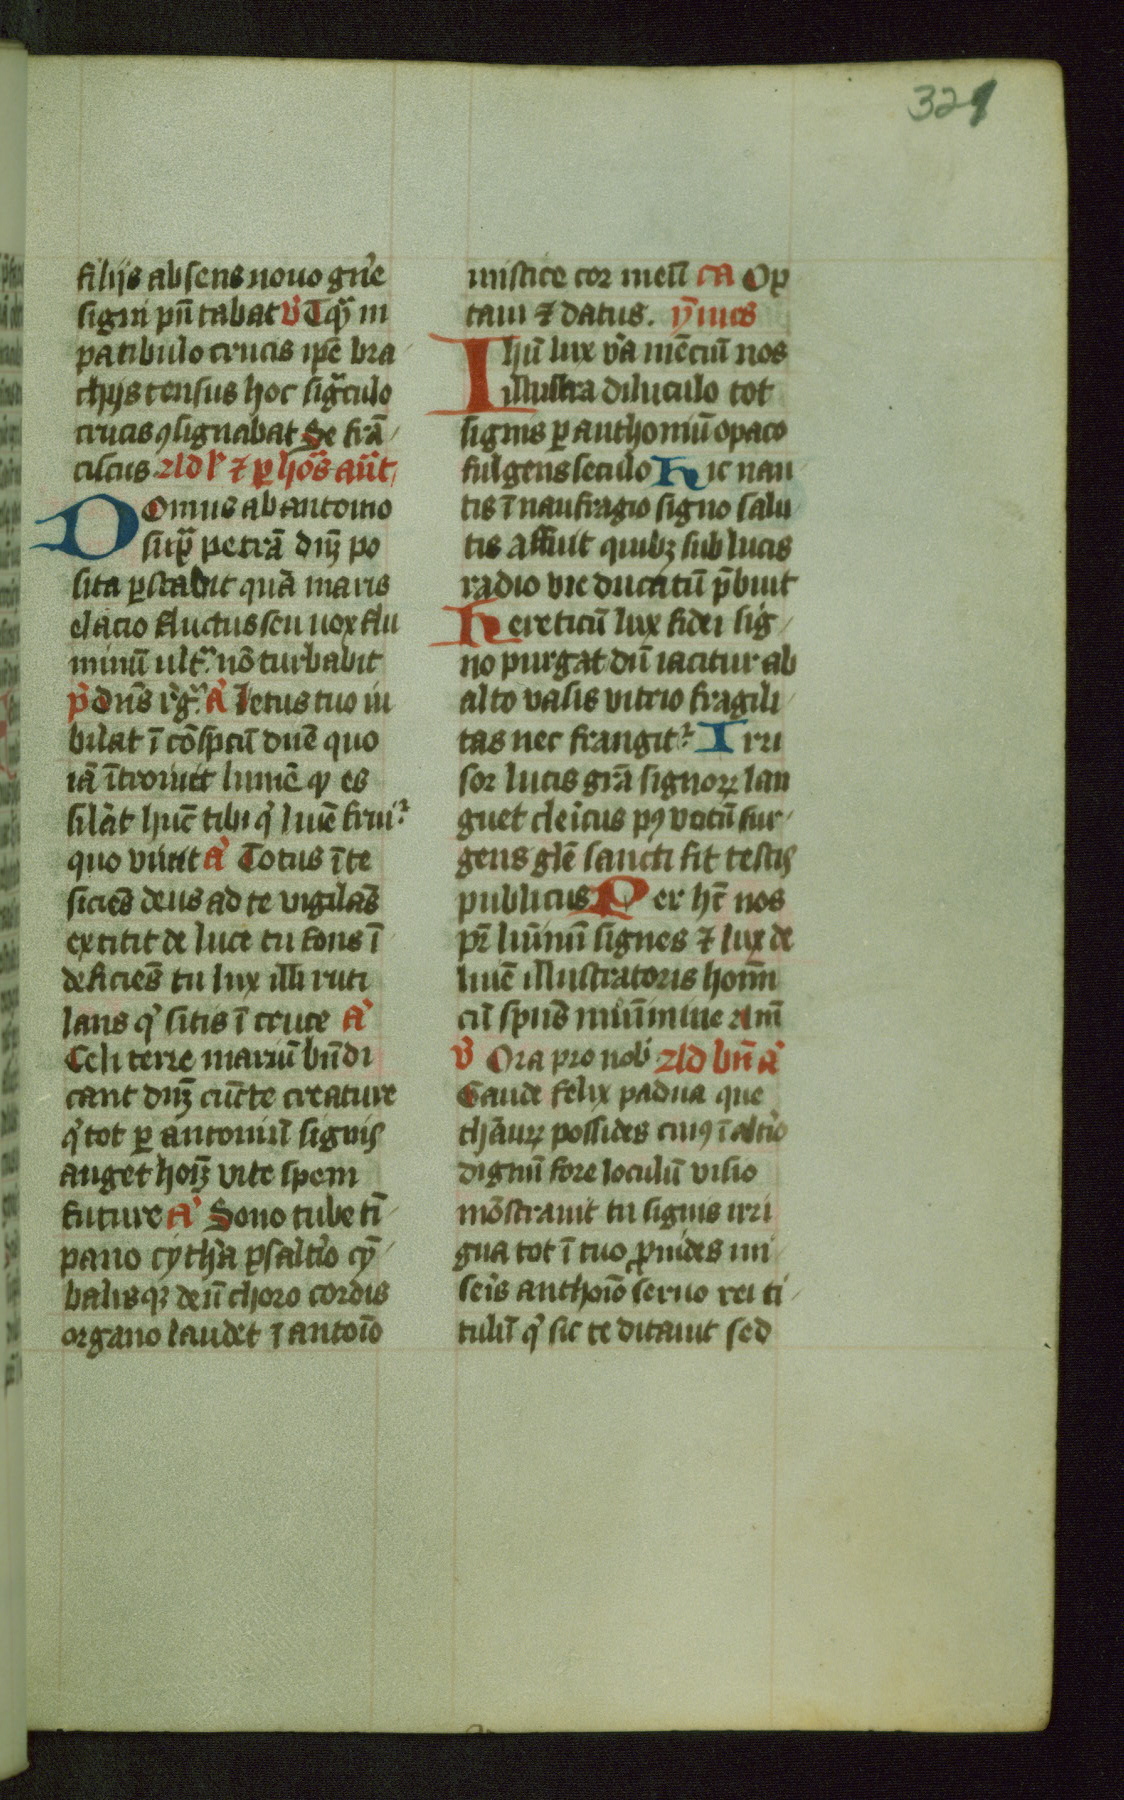 321
filijs absens nouo gn̄e
signi pn̄ tabat v̓ Tq̄ʒ in
patibulo crucis ip̄e bra
chijs tensus hoc sig̃culo
crucis ꝯsignabat Se frā
ciscus Ad l̓ ⁊ ꝑ hōs an̄t
Domus ab antonio
sup̃ petrā dn̄ʒ po
sita ꝑstabit quā maris
elacio fluctus seu uox flu
minū ult̃ nō turbabit
p̄s dn̄s rg̃ a̓ Letus tuo iu
bilat ī cōspc̄u dn̄e quo
iā ītroiuit lumē qͥ es
silāt huc̄ tibi qͥ lum̄e fruiͬ
quo viuit a̓ Totus ī te
sicies̄ deus ad te vigilas̄
extitit de luce tu fons ī
deficies̄ tu lux illi ruti
lans qͥ sitis ī cruce a̓
Celi terre mariū bn̄di
cant dn̄ʒ cūcte creature
qͥ tot ꝑ antoniū signis
auget hoīʒ vite spem
future a̓ Sono tube tī
pano cythr̄a psaltīo cȳ
balisqʒ deū choro cordis
organo laudet ī antoīo
mistice cor meū ca Op
taui ⁊ datus. ymnes
Ihū lux va̓ men̄ciū nos
illustra diluculo tot
signis ꝑ anthoniū opaco
fulgens seculo Hic nau
tis ī naufragio signo salu
tis affuit quibʒ sub lucis
radio vie ducatū p̄buit
Hereticū lux fidei sig
no purgat dū iacitur ab
alto vasis vitrio fragili
tas nec frangitͬ Irri
sor lucis grā signoꝝ lan
guet clei̓cus pꝰ votū sur
gens glē sancti fit testis
publicus Per hc̄ nos
pr̄ lum̄inū signes ⁊ lux de
lum̄e illustratoris hom̄
cū spūs mun̄imine Am̄
v̓ Ora pro nob̓ Ad bn̄ a̓
Gaude felix padua que
thāuꝝ possides cuiꝰ ī altīo
dignū fore loculū visio
mōstrauit tu signis irri
gua tot ī tuo ꝓuides mi
sei̓s anthoīo seruo rei ti
tulū qͥ sic te ditauit sed